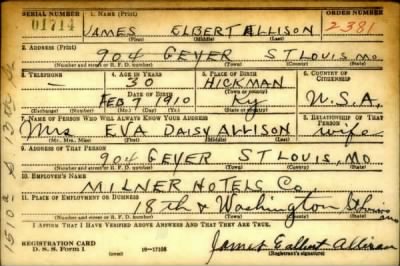 SERIAL NUMBER 1. NAME (Print) ORDER NUMBER
01714 JAMES ELBERT ALLISON 2381
(First) (Middle) (Last)
2. ADDRESS (Print)
904 GEYER ST LOUIS, MO
(Number and street or R. F. D. number) (Town) (County) (State)
3. TELEPHONE 4. AGE IN YEARS 5. PLACE OF BIRTH 6. COUNTRY OF CITIZENSHIP
— 30 HICKMAN
DATE OF BIRTH (Town or county)
FEB 7 1910 Ky U.S.A.
(Exchange) (Number) (Mo.) (Day) (Yr.) (State or country)
7. NAME OF PERSON WHO WILL ALWAYS KNOW YOUR ADDRESS 8. RELATIONSHIP OF THAT PERSON
Mrs EVA DAISY ALLISON wife
(Mr., Mrs., Miss) (First) (Middle) (Last)
9. ADDRESS OF THAT PERSON
904 GEYER ST LOUIS, MO
(Number and street or R. F. D. number) (Town) (County) (State)
10. EMPLOYER'S NAME
MILNER HOTELS Co
11. PLACE OF EMPLOYMENT OR BUSINESS
18th & Washington
(Number and street or R. F. D. number) (Town) (County) (State)
I AFFIRM THAT I HAVE VERIFIED ABOVE ANSWERS AND THAT THEY ARE TRUE.
REGISTRATION CARD
D. S. S. Form 1 16—17105 (Registrant's signature)